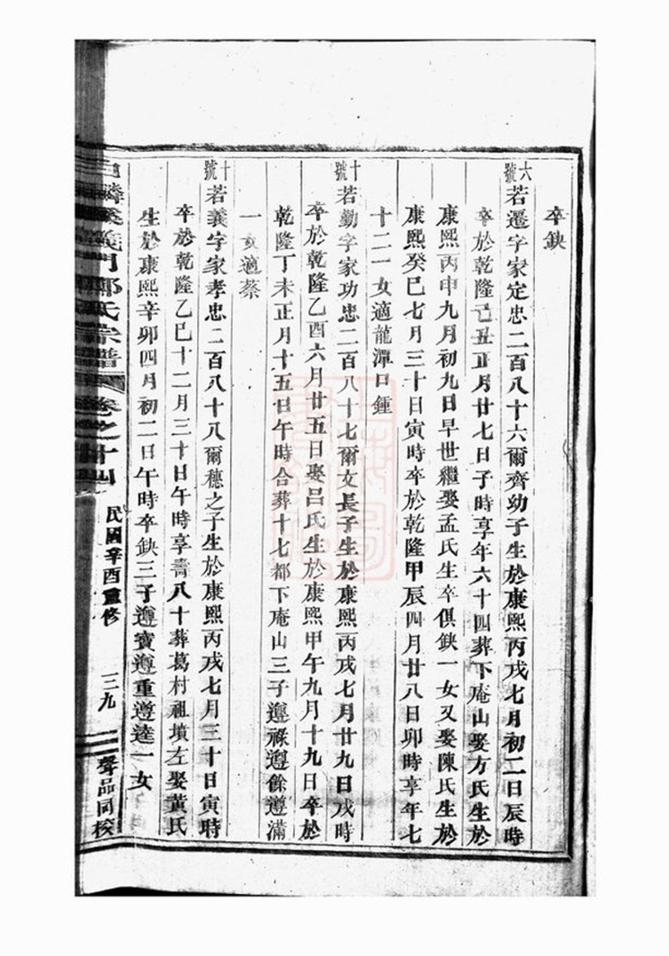 卒缺
六號若遷字家定忠二百八十六爾齊幼子生於康熙丙戌七月初二日辰時
卒於乾隆己丑正月廿七日子時享年六十四葬下庵山娶方氏生於
康熙丙申九月初九日早世繼娶孟氏生卒俱缺一女又娶陳氏生於
康熙癸巳七月三十日寅時卒於乾隆甲辰四月廿八日卯時享年七
十二一女適龍潭口鍾
十號若勤字家功忠二百八十七爾文長子生於康熙丙戌七月廿九日戌時
卒於乾隆乙酉六月廿五日娶呂氏生於康熙甲午九月十九日卒於
乾隆丁未正月十五日午時合葬十七都下庵山三子遵祿遵餘遵滿
一女適蔡
十號若義字家孝忠二百八十八爾穗之子生於康熙丙戌七月三十日寅時
卒於乾隆乙巳十二月三十日午時享壽八十葬葛村祖墳左娶黃氏
生於康熙辛卯四月初二日午時卒缺三子遵寶遵重遵達一女
義門鄭氏宗譜 卷之十四 民國辛酉重修 三九 聲品同校